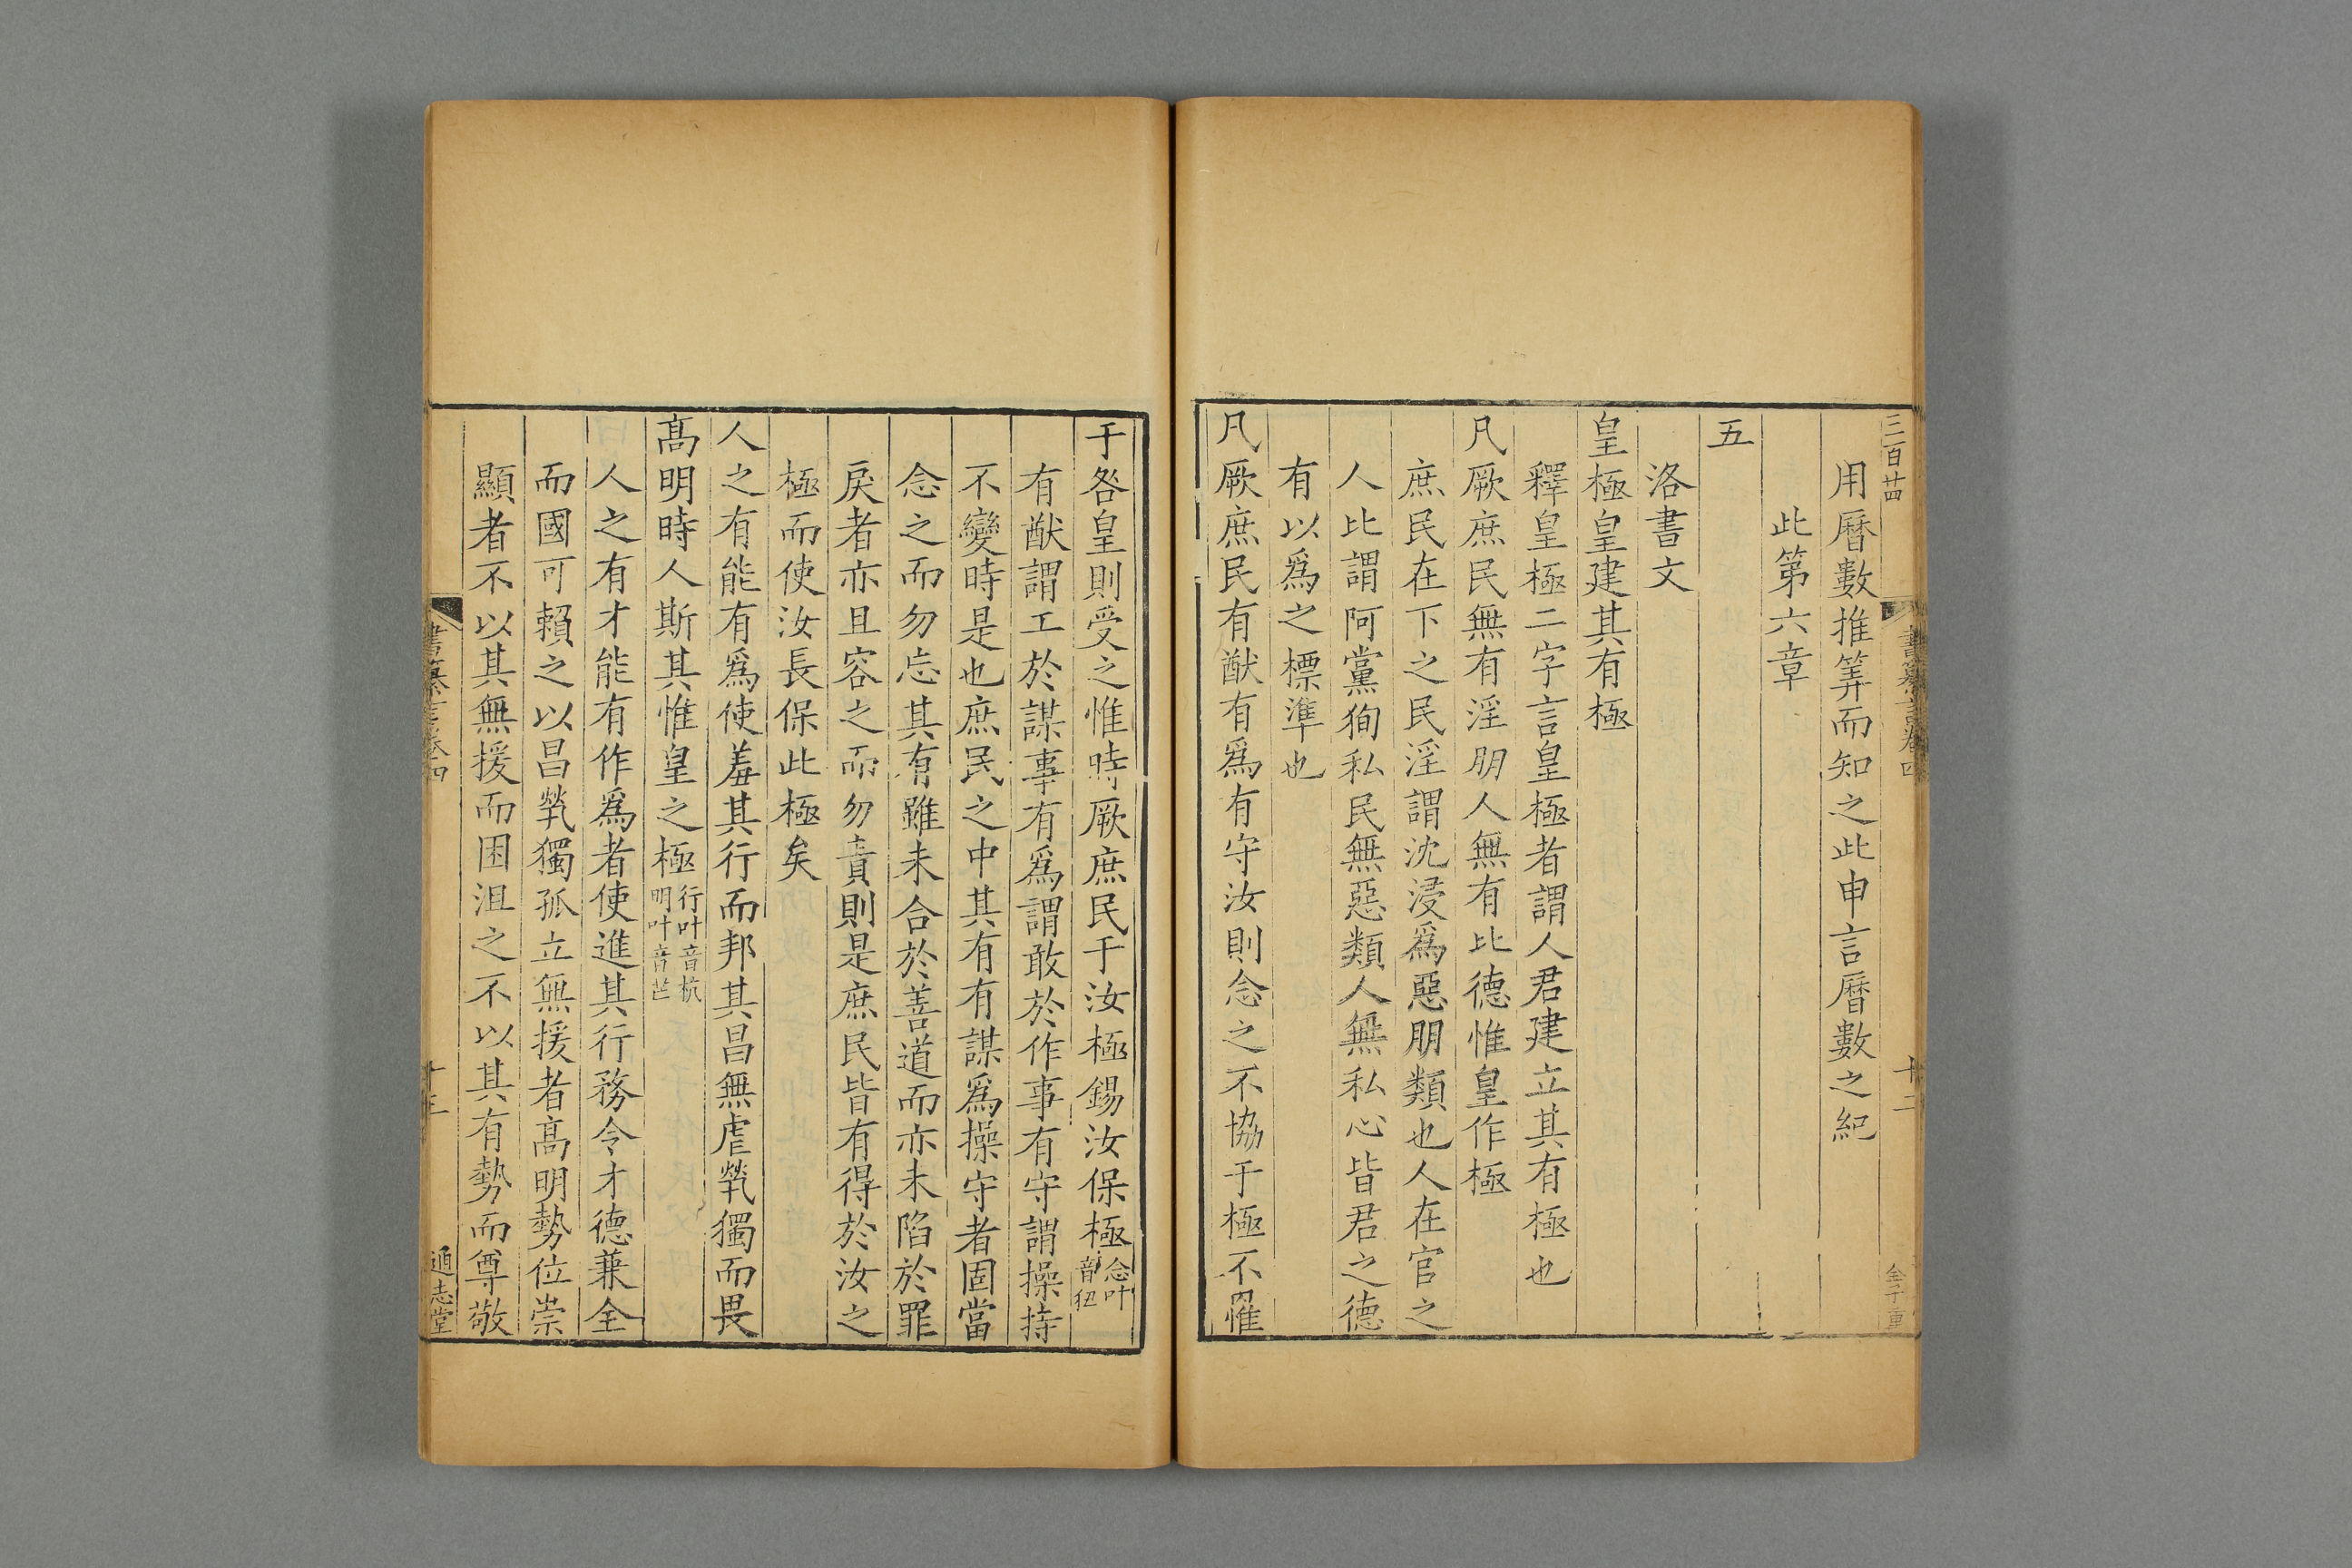 三百廿四
書纂言卷四
十二
用曆數推筭而知之此申言曆數之紀
此第六章
五
洛書文
皇極皇建其有極
釋皇極二字言皇極者謂人君建立其有極也
凡厥庶民無有淫朋人無有比德惟皇作極
庶民在下之民淫謂沈浸爲惡朋類也人在官之
人比謂阿黨狥私民無惡類人無私心皆君之德
有以爲之標準也
凡厥庶民有猷有爲有守汝則念之不協于極不罹
于咎皇則受之惟時厥庶民于汝極錫汝保極念叶
音狃
有猷謂工於謀事有爲謂敢於作事有守謂操持
不變時是也庶民之中其有有謀爲操守者固當
念之而勿忘其有雖未合於善道而亦未陷於罪
戾者亦且容之而勿責則是庶民皆有得於汝之
極而使汝長保此極矣
人之有能有爲使羞其行而邦其昌無虐煢獨而畏
高明時人斯其惟皇之極行叶音杭
明叶音芒
人之有才能有作爲者使進其行務令才德兼全
而國可賴之以昌煢獨孤立無援者高明勢位崇
顯者不以其無援而困沮之不以其有勢而尊敬
書纂言卷四
十三
通志堂